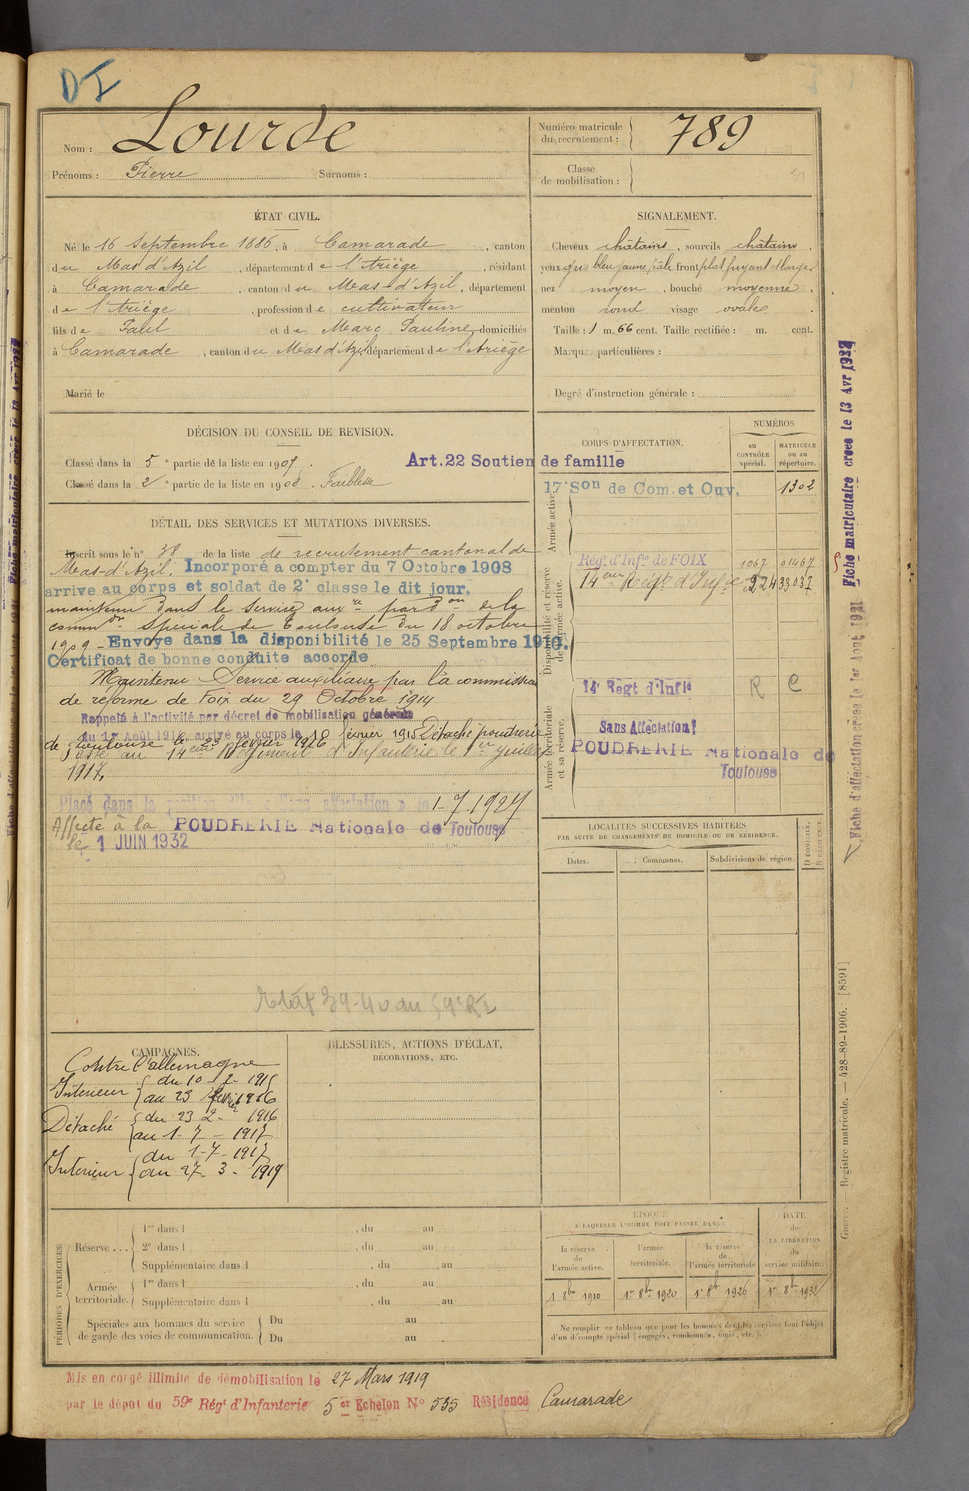 DI
Nom : Lourde
Prénoms : Pierre Surnoms :
Numéro matricule du recrutement : 789
Classe de mobilisation :
ÉTAT CIVIL.
Né le 16 Septembre 1886, à Camarade, canton
du Mas d'Azil, département de l'Ariège, résidant
à Camarade, canton du Mas-d'Azil, département
de l'Ariège, profession de cultivateur
fils de Paul et de Marc Pauline, domiciliés
à Camarade, canton du Mas d'Azil, département de l'Ariège
Marié le
SIGNALEMENT.
Cheveux châtains, sourcils châtains,
yeux gris bleu jaune pâle front plat fuyant
nez moyen, bouche moyenne,
menton rond visage ovale.
Taille : 1 m. 66 cent. Taille rectifiée : m. cent.
Marques particulières :
Degré d'instruction générale :
DÉCISION DU CONSEIL DE REVISION.
Classé dans la 5e partie de la liste en 1907.
Art.22 Soutien de famille
Classé dans la 2e partie de la liste en 1908. Faiblesse
DÉTAIL DES SERVICES ET MUTATIONS DIVERSES.
Inscrit sous le n° 38 de la liste de recrutement cantonal de
Mas-d'Azil. Incorporé a compter du 7 Octobre 1908
arrive au corps et soldat de 2e classe le dit jour.
maintenu dans le service auxre par Don de la
common spéciale de Toulouse du 18 octobre
1909 - Envoyé dans la disponibilité le 25 Septembre 1910.
Certificat de bonne conduite accordé
Maintenu Service auxiliaire par la commission
de réforme de Foix du 29 Octobre 1914
Rappelé à l'activité par décret de mobilisation générale
du 1er Août 1914, arrivé au corps le 10 février 1915 Détaché poudrerie
de Toulouse le 23 février 1916
Passé au 14eme Régiment d'Infanterie le 1er Juillet
1917.
Placé dans la position dite « sans affectation » le 1-7-1927
Affecté à la POUDRERIE Nationale de Toulouse
le 1 JUIN 1932
CORPS D'AFFECTATION.
NUMÉROS
au CONTRÔLE spécial.
MATRICULE ou au répertoire.
Armée active.
17e Son de Com. et Ouv. 1302
Disponibilité et réserve de l'armée active.
Régt d'Infie de FOIX 1067 01467
14eme Regt d'Infie 924 33037
Armée territoriale et sa réserve.
14e Régt d'Infie R C
Sans Affectation!
POUDRERIE Nationale de
Toulouse
LOCALITÉS SUCCESSIVES HABITÉES
PAR SUITE DE CHANGEMENTS DE DOMICILE OU DE RÉSIDENCE.
Dates. Communes. Subdivisions de région. D DOMICILE. R RÉSIDENCE.
CAMPAGNES.
Contre l'allemagne
Intérieur du 10-2-1915
au 23 fevr 1916
Détaché du 23 2 - 1916
au 1-7-1917
Intérieur du 1-7-1917
au 27-3-1919
BLESSURES, ACTIONS D'ÉCLAT,
DÉCORATIONS, ETC.
PÉRIODES D'EXERCICES.
Réserve... 1re dans l , du au
2e dans l , du au
Supplémentaire dans l , du au
Armée territoriale. 1re dans l , du au
Supplémentaire dans l , du au
Spéciales aux hommes du service de garde des voies de communication.
Du au
Du au
ÉPOQUE
À LAQUELLE L'HOMME DOIT PASSER DANS :
la réserve de l'armée active. l'armée territoriale. la réserve de l'armée territoriale
DATE de LA LIBÉRATION du service militaire.
1 8bre 1910 1er 8bre 1920 1er 8bre 1926 1er 8bre 1932
Ne remplir ce tableau que pour les hommes dont les services font l'objet
d'un décompte spécial (engagés, condamnés, omis, etc.).
Mis en congé illimité de démobilisation le 27 Mars 1919
par le dépôt du 59e Régt d'Infanterie 5er Echelon N° 535 Résidence Camarade
Fiche matriculaire créée le 13 Avr 1937
Fiche d'affectation créée le 1er Août 1921
Registre matricule. — 428-89-1906. [8591]